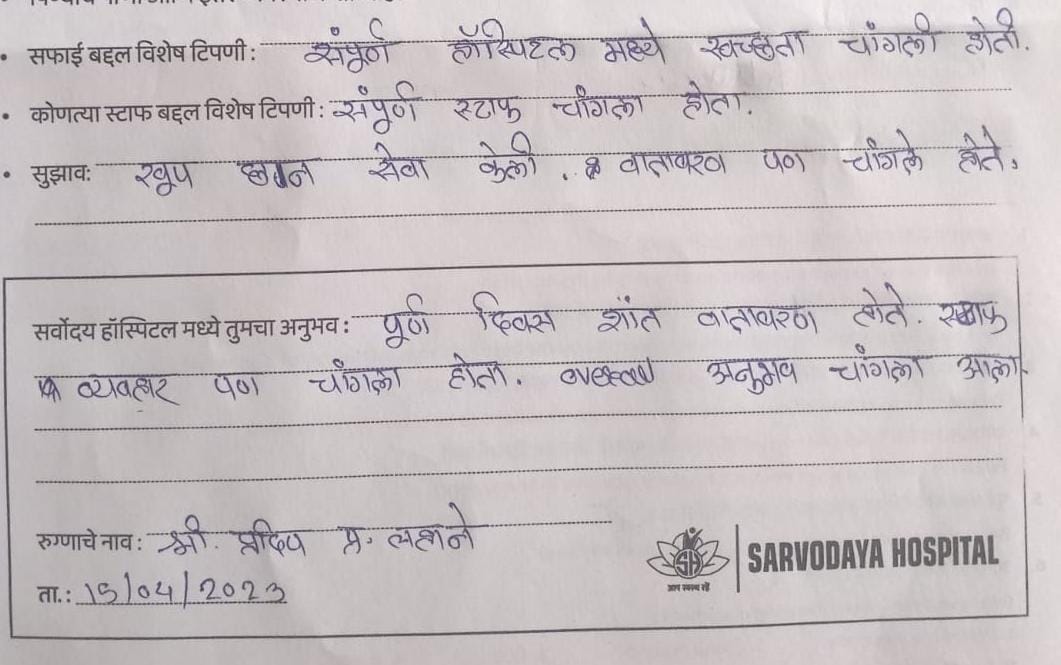 • सफाई बद्दल विशेष टिपणी : संपूर्ण हॉस्पिटल मध्ये स्वच्छता चांगली होती.
• कोणत्या स्टाफ बद्दल विशेष टिपणी : संपूर्ण स्टाफ चांगला होता.
• सुझावः खूप छान सेवा केली . वातावरण पण चांगले होते.
सर्वोदय हॉस्पिटल मध्ये तुमचा अनुभव : पूर्ण दिवस शांत वातावरण होते. स्टाफ
व्यवहार पण चांगला होता. overall अनुभव चांगला आला.
रुग्णाचे नाव : श्री. प्रदिप प्र. लहाने
ता.: 15/04/2023
SH
आप स्वस्थ रहें
SARVODAYA HOSPITAL